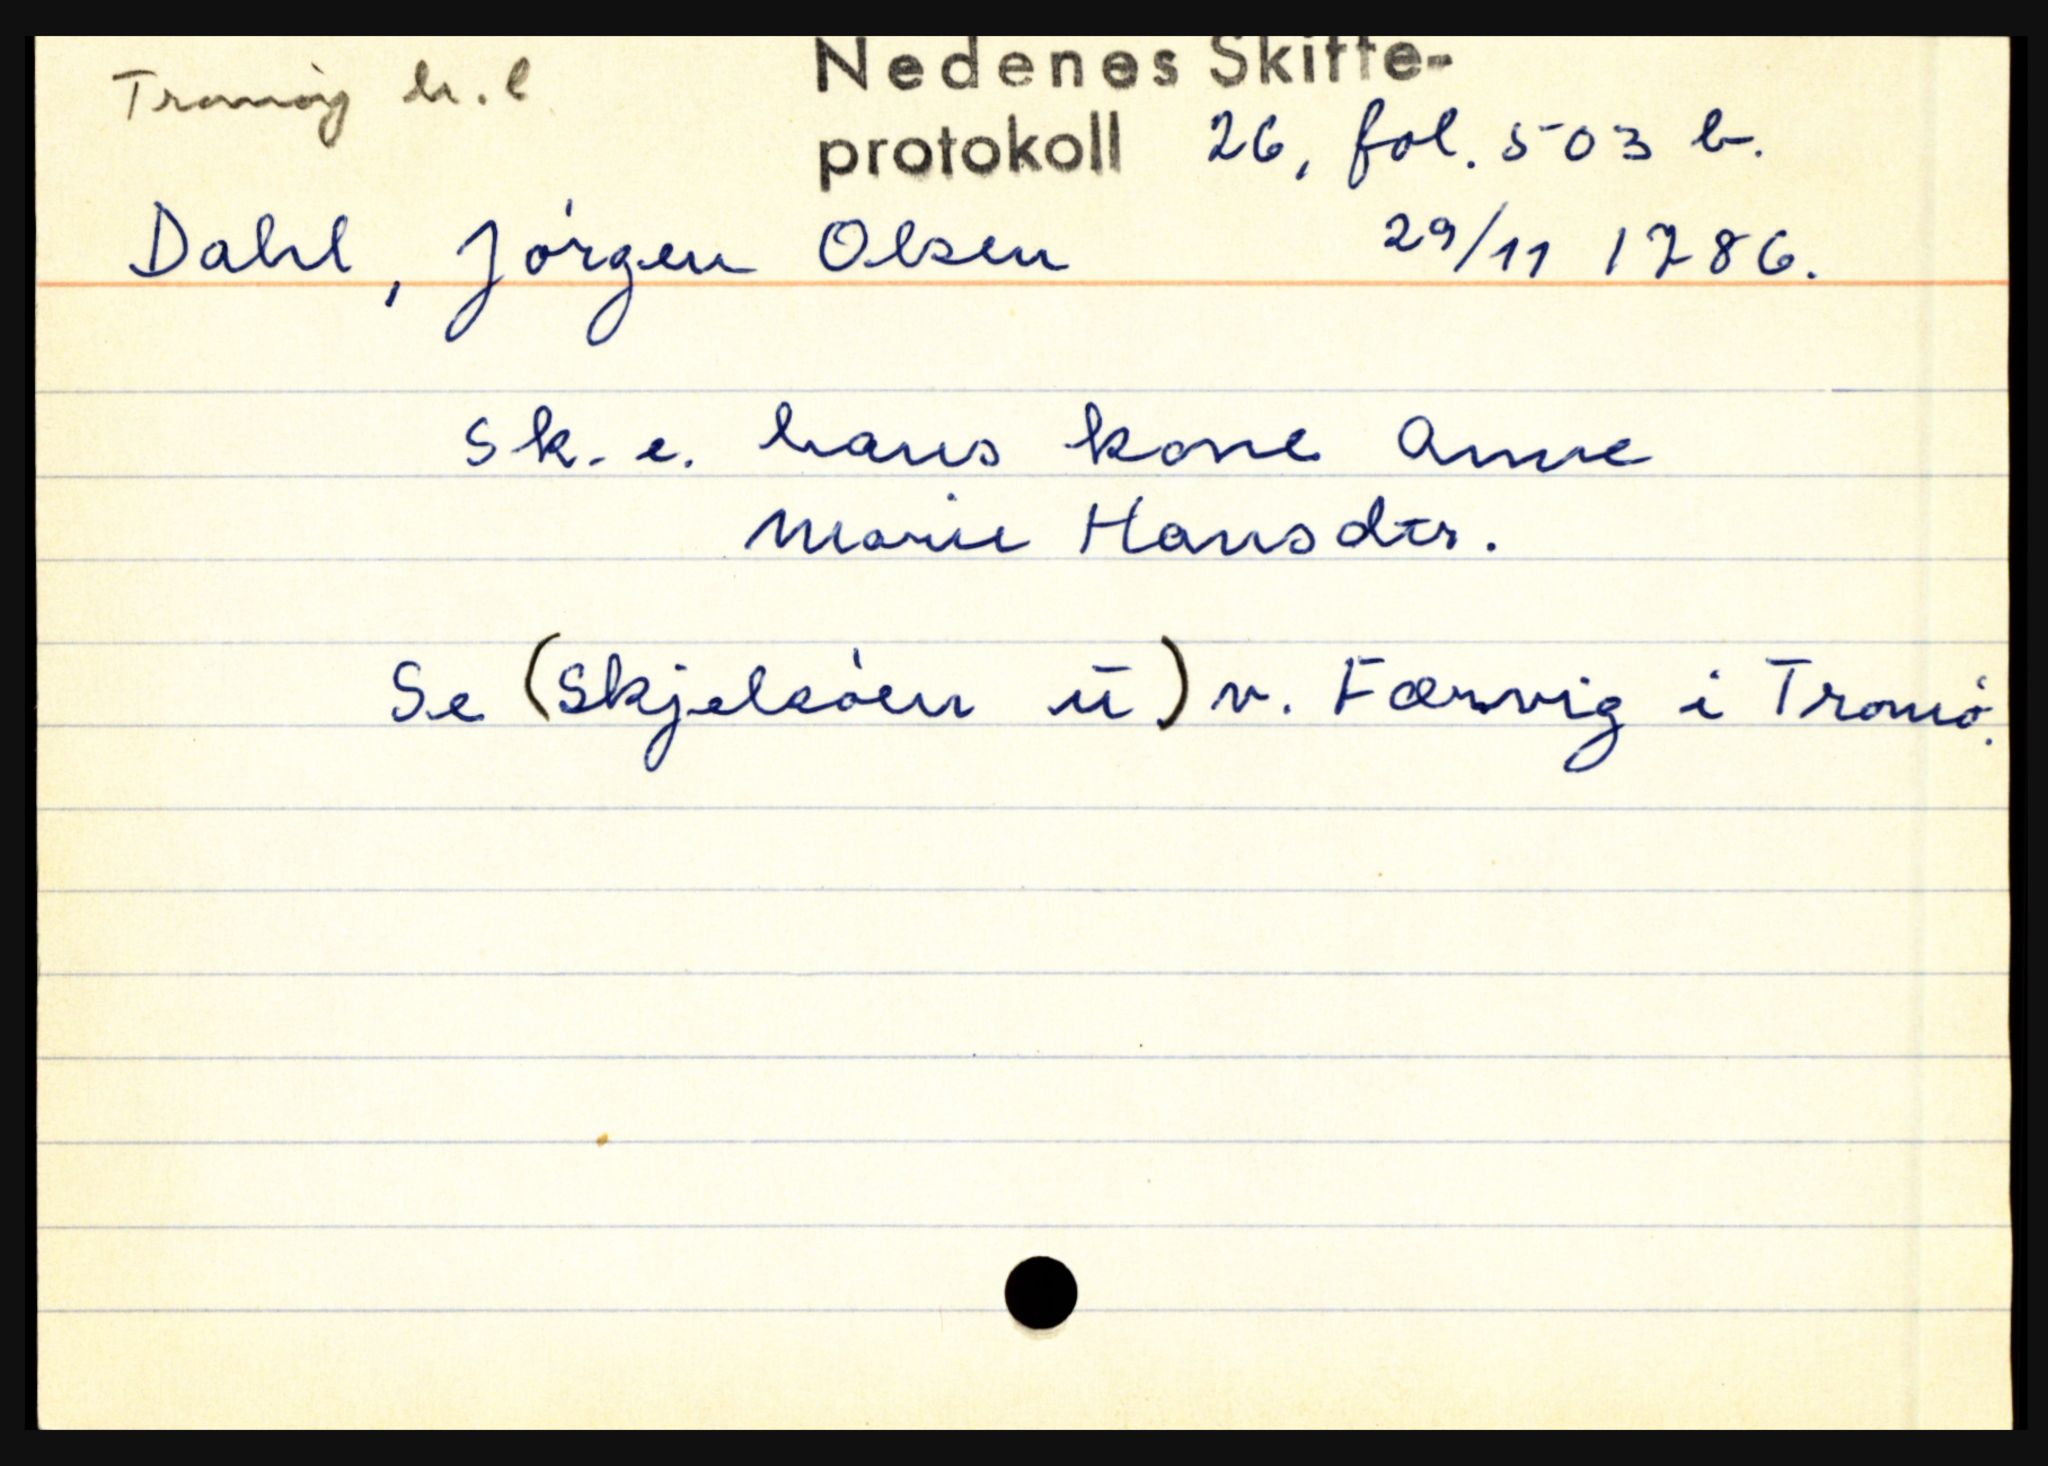 Tromøy h.l
Nedenes Skifte-
protokoll 26, fol. 503 b.
Dahl, Jørgen Olsen 29/11 1786.
sk. e. hans kone Anne
Marie Hansdtr.
Se (Skjelsøen u) v. Færvig i Tromø.